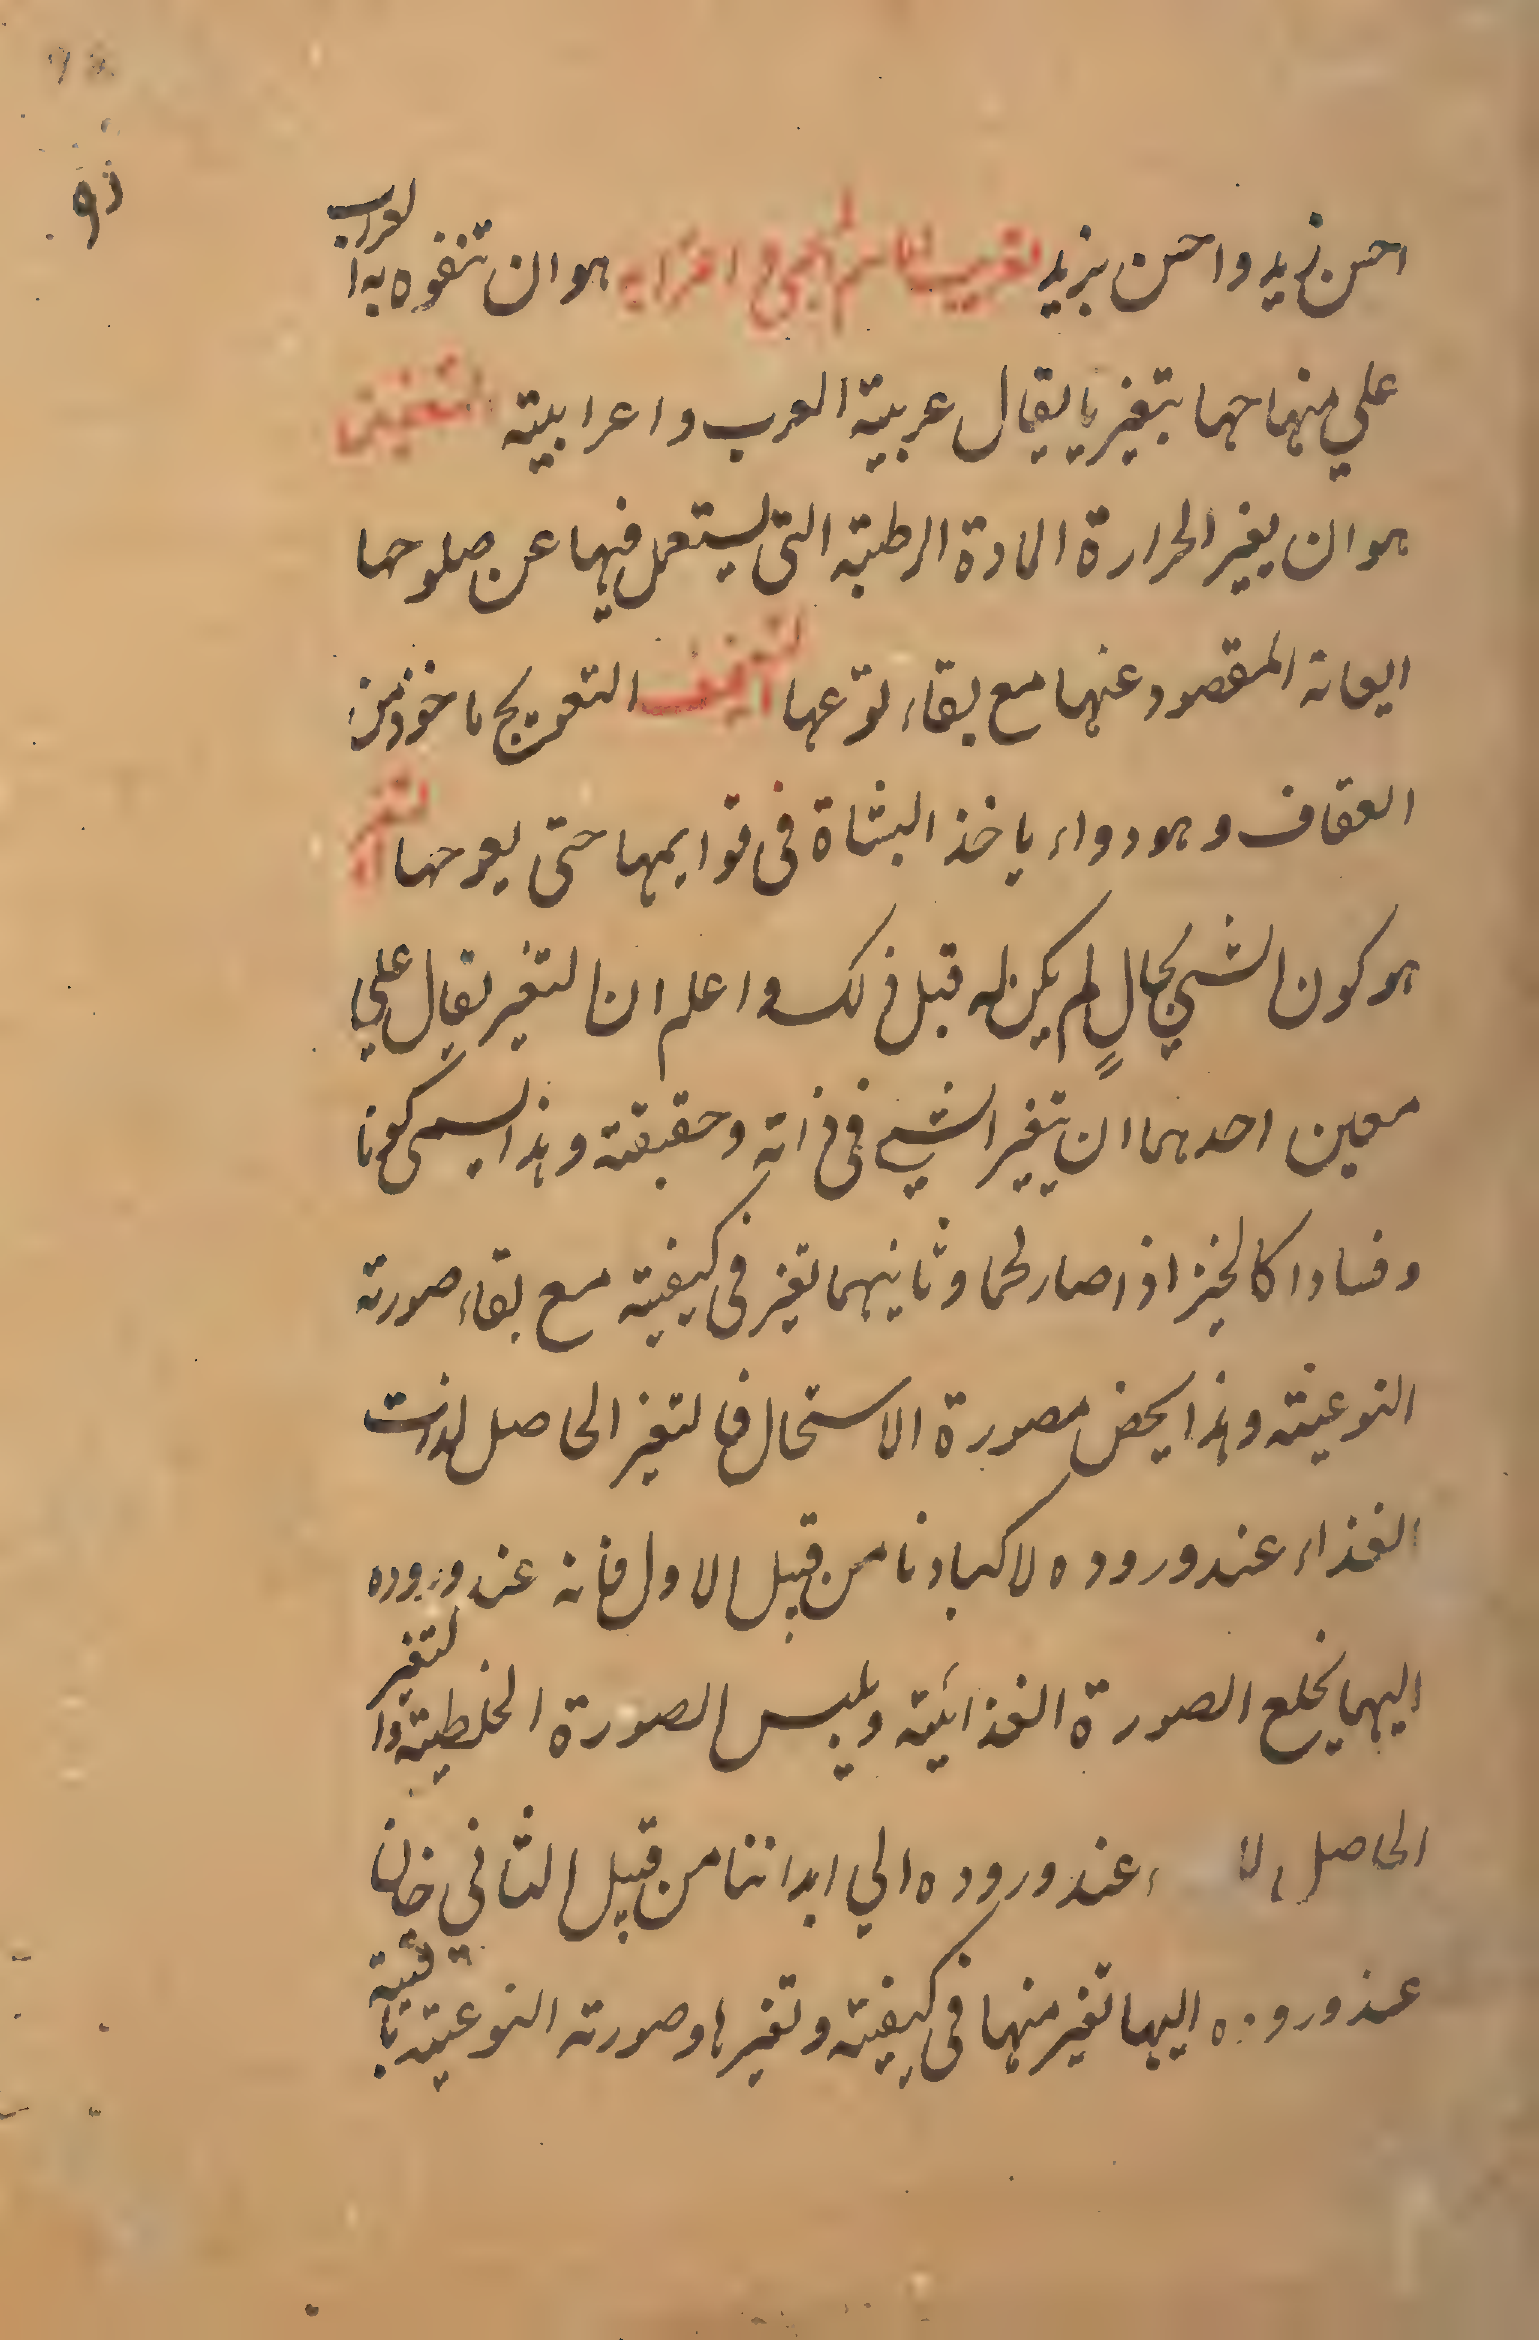 احسن زيد واحسن بزيد تعريب الاسم العجمى واعرابه هو ان تتفوه به العرب
علي منهاجها بتغير ما يقال عربية العرب واعرابيته التعفين
هو ان يغير الحرارة المادة الرطبة التى يستعمل فيها عن صلوحها
المقصود عنها مع بقاء نوعها التعقيف التعويج ماخوذ من
العقاف وهو دواء ياخذ الشاة فى قوايمها حتى يعوجها التغير
هو كون الشي بحالٍ لم يكن له قبل ذلك واعلم ان التغير يقال علي
معين احدهما ان يتغير الشي فى ذاته وحقيقته وهذا يسمى كونا
وفسادا كالخبز اذا صار لحما وثانيهما تغير فى كيفيته مع بقاء صورته
النوعية وهذا يخض بصورة الاستحال فالتغير الحاصل لذات
الغذاء عند وروده لاكبادنا من قبل الاول فانه عند وروده
اليها يخلع الصورة الغذائية ويلبس الصورة الخلطية والتغير
الحاصل عند وروده الي ابداننا من قبل الثاني فان
عند وروده اليها تغير منها فى كيفيته وتغيرها وصورته النوعية باقية